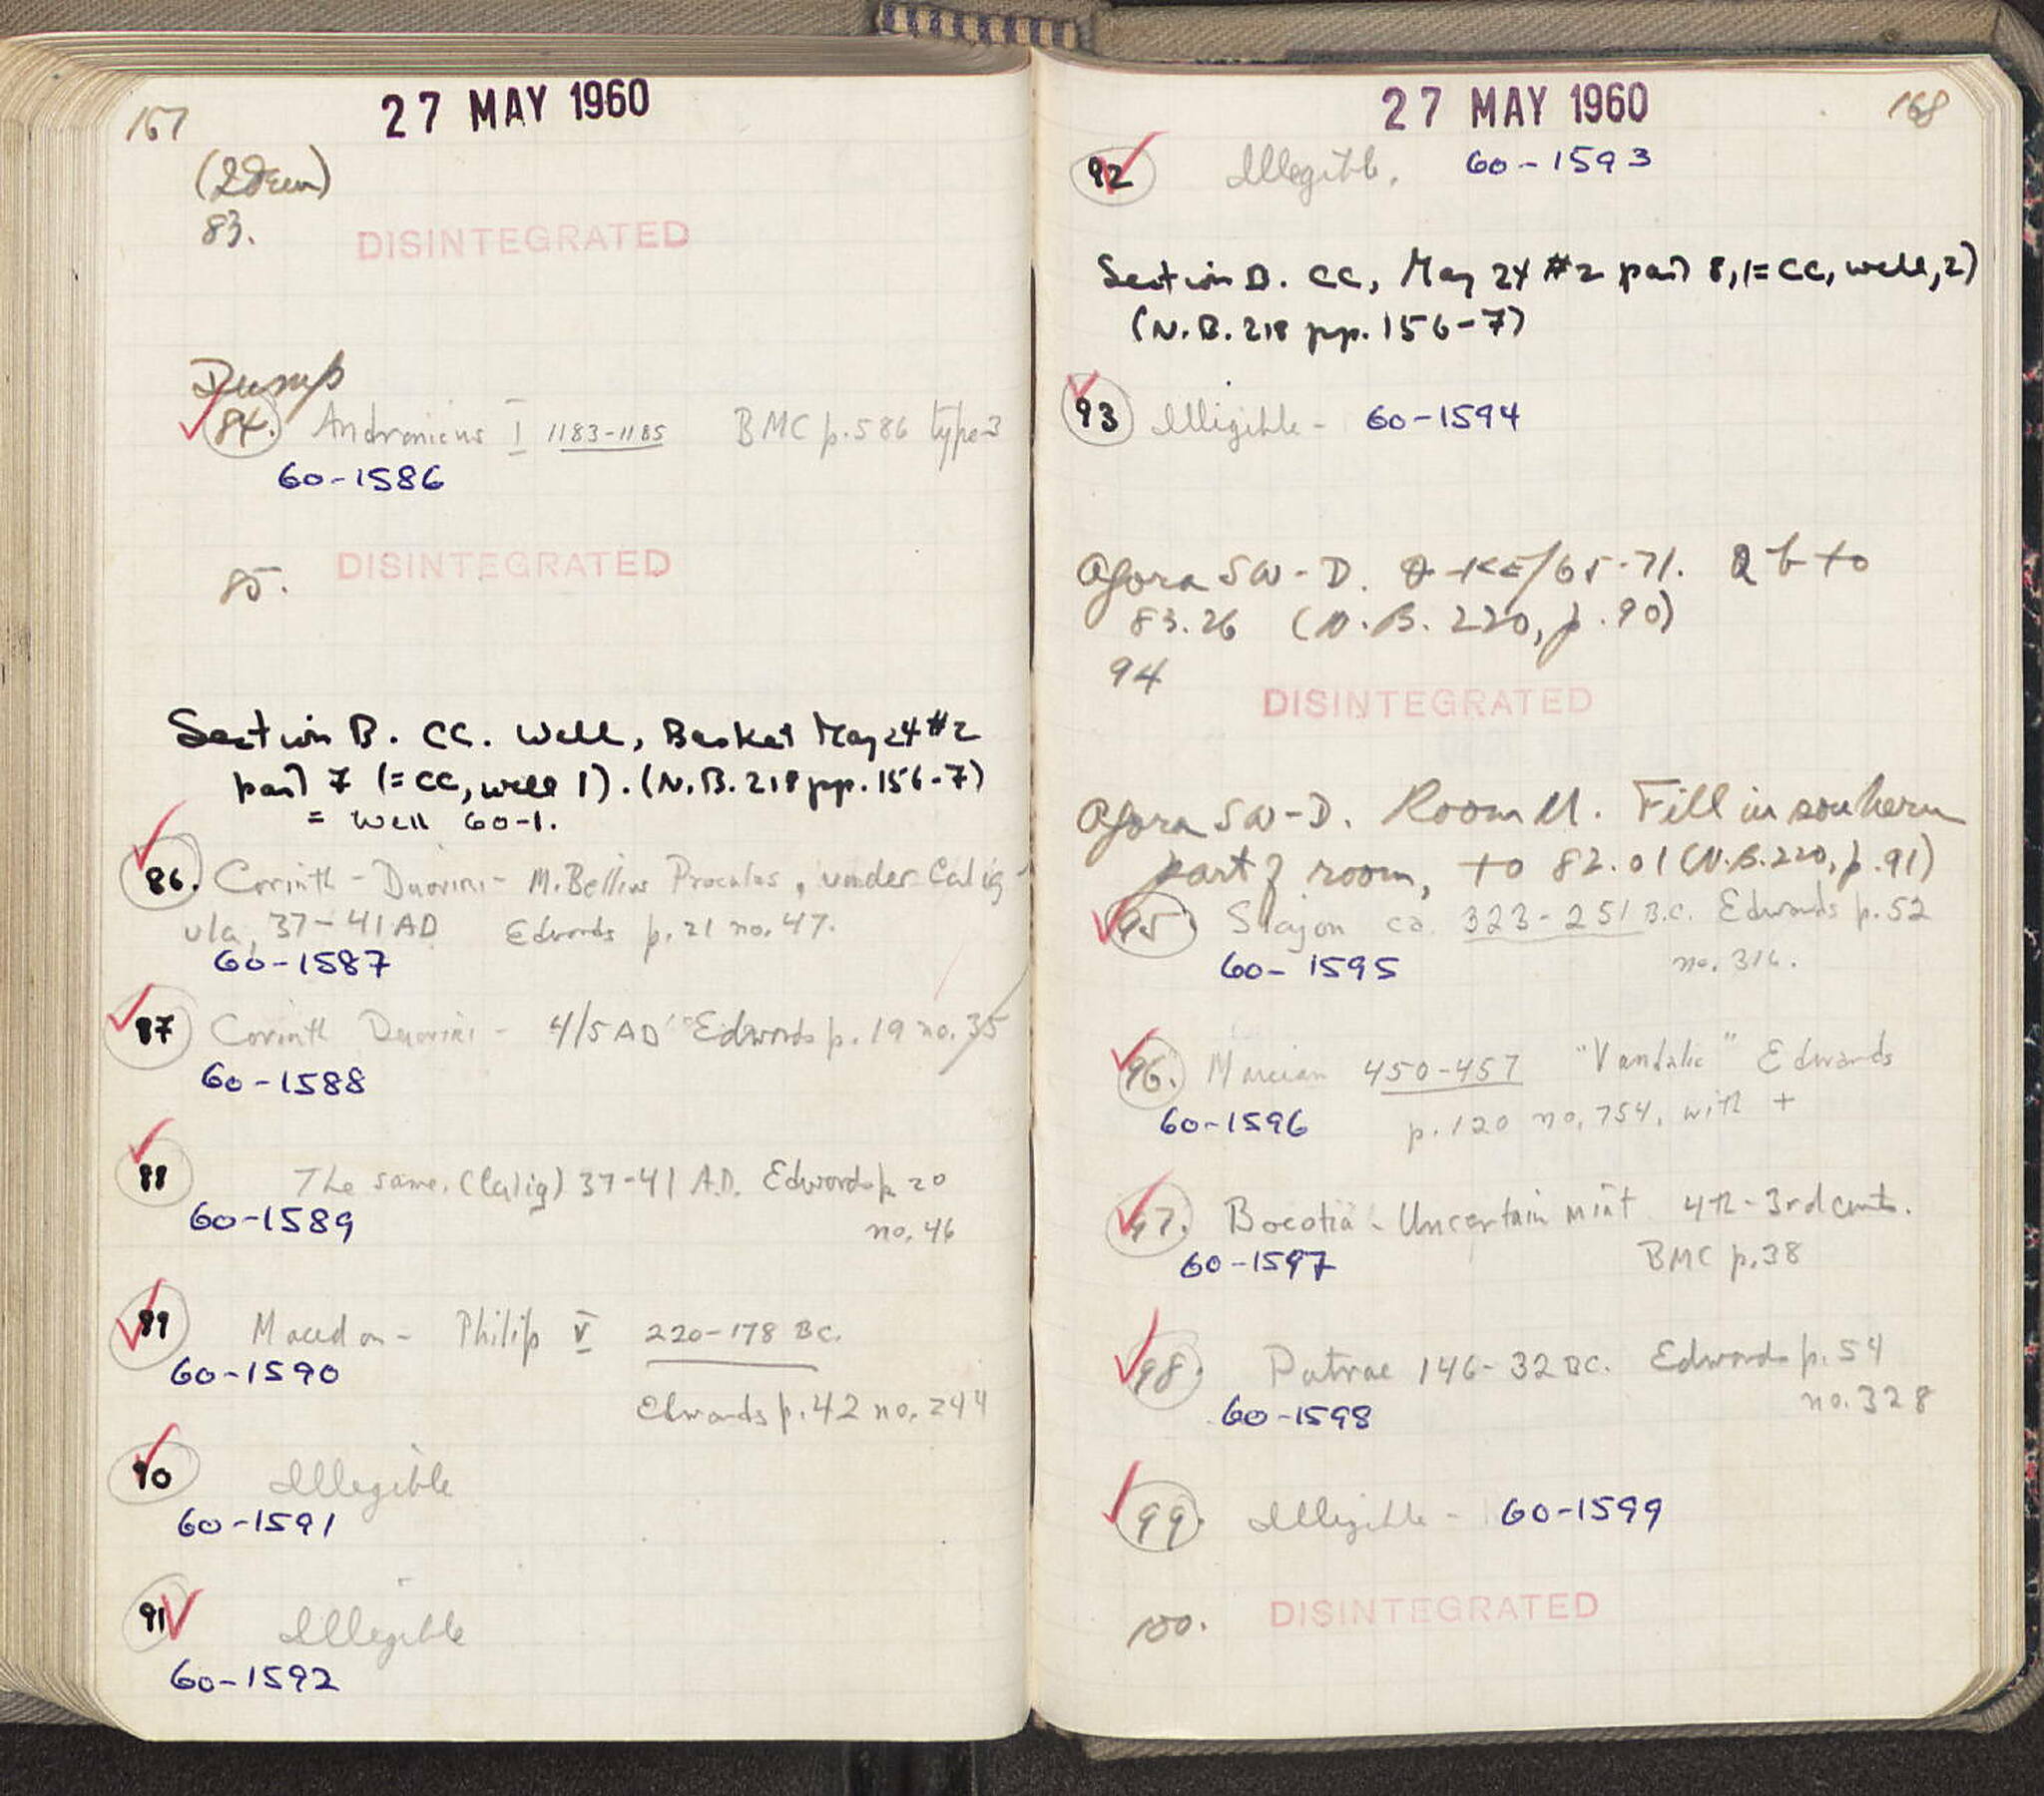 167
27 MAY 1960
83.
DISINTEGRATED
Dump
84. Andronicus I 1183-1185 BMC p.586 type 3
60-1586
85. DISINTEGRATED
Section B. CC. Well, Basket May 24 #2
pail 7 (=CC, well 1). (N.B. 218 pp. 156-7)
= well 60-1.
86. Corinth - Duoviri - M. Bellius Proculus, under Calig-
ula, 37-41 AD Edwards p.21 no.47.
60-1587
87 Corinth Duoviri - 4/5 AD Edwards p.19 no.35
60-1588
88 The same. (Calig) 37-41 A.D. Edwards p. 20
60-1589 no. 46
89 Macedon - Philip V 220-178 BC.
60-1590
Edwards p.42 no. 244
90 Illegible
60-1591
91 Illegible
60-1592
168
27 MAY 1960
92 Illegible. 60-1593
Section B. CC, May 24 #2 pail 8, (=CC, well, 2)
(N.B. 218 pp. 156-7)
93 Illegible - 60-1594
Agora SW-D. KE/65-71. to
83.26 (N.B. 220, p.90)
94
DISINTEGRATED
Agora SW-D. Room Fill in southern
part of room, to 82.01 (N.B. 220, p.91)
95 ca. 323-251 B.C. Edwards p.52
60-1595 no. 316.
96. Marcian 450-457 "Vandalic" Edwards
60-1596 p.120 no. 754, with +
97. Boeotia - Uncertain mint 4th-3rd cents.
60-1597 BMC p.38
98. Patrae 146-32 BC. Edwards p.54
60-1598 no. 328
99. Illegible - 60-1599
100. DISINTEGRATED